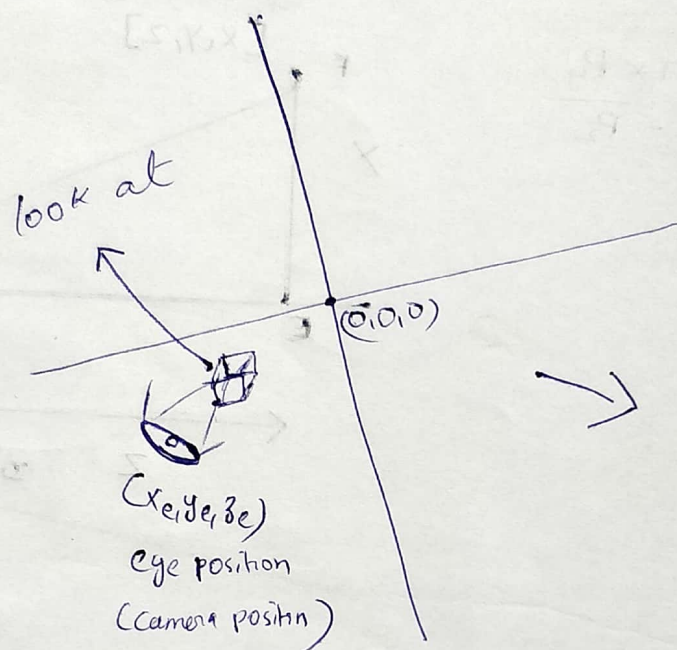 look at
(0,0,0)
(xe,ye,ze)
eye position
(camera positin)